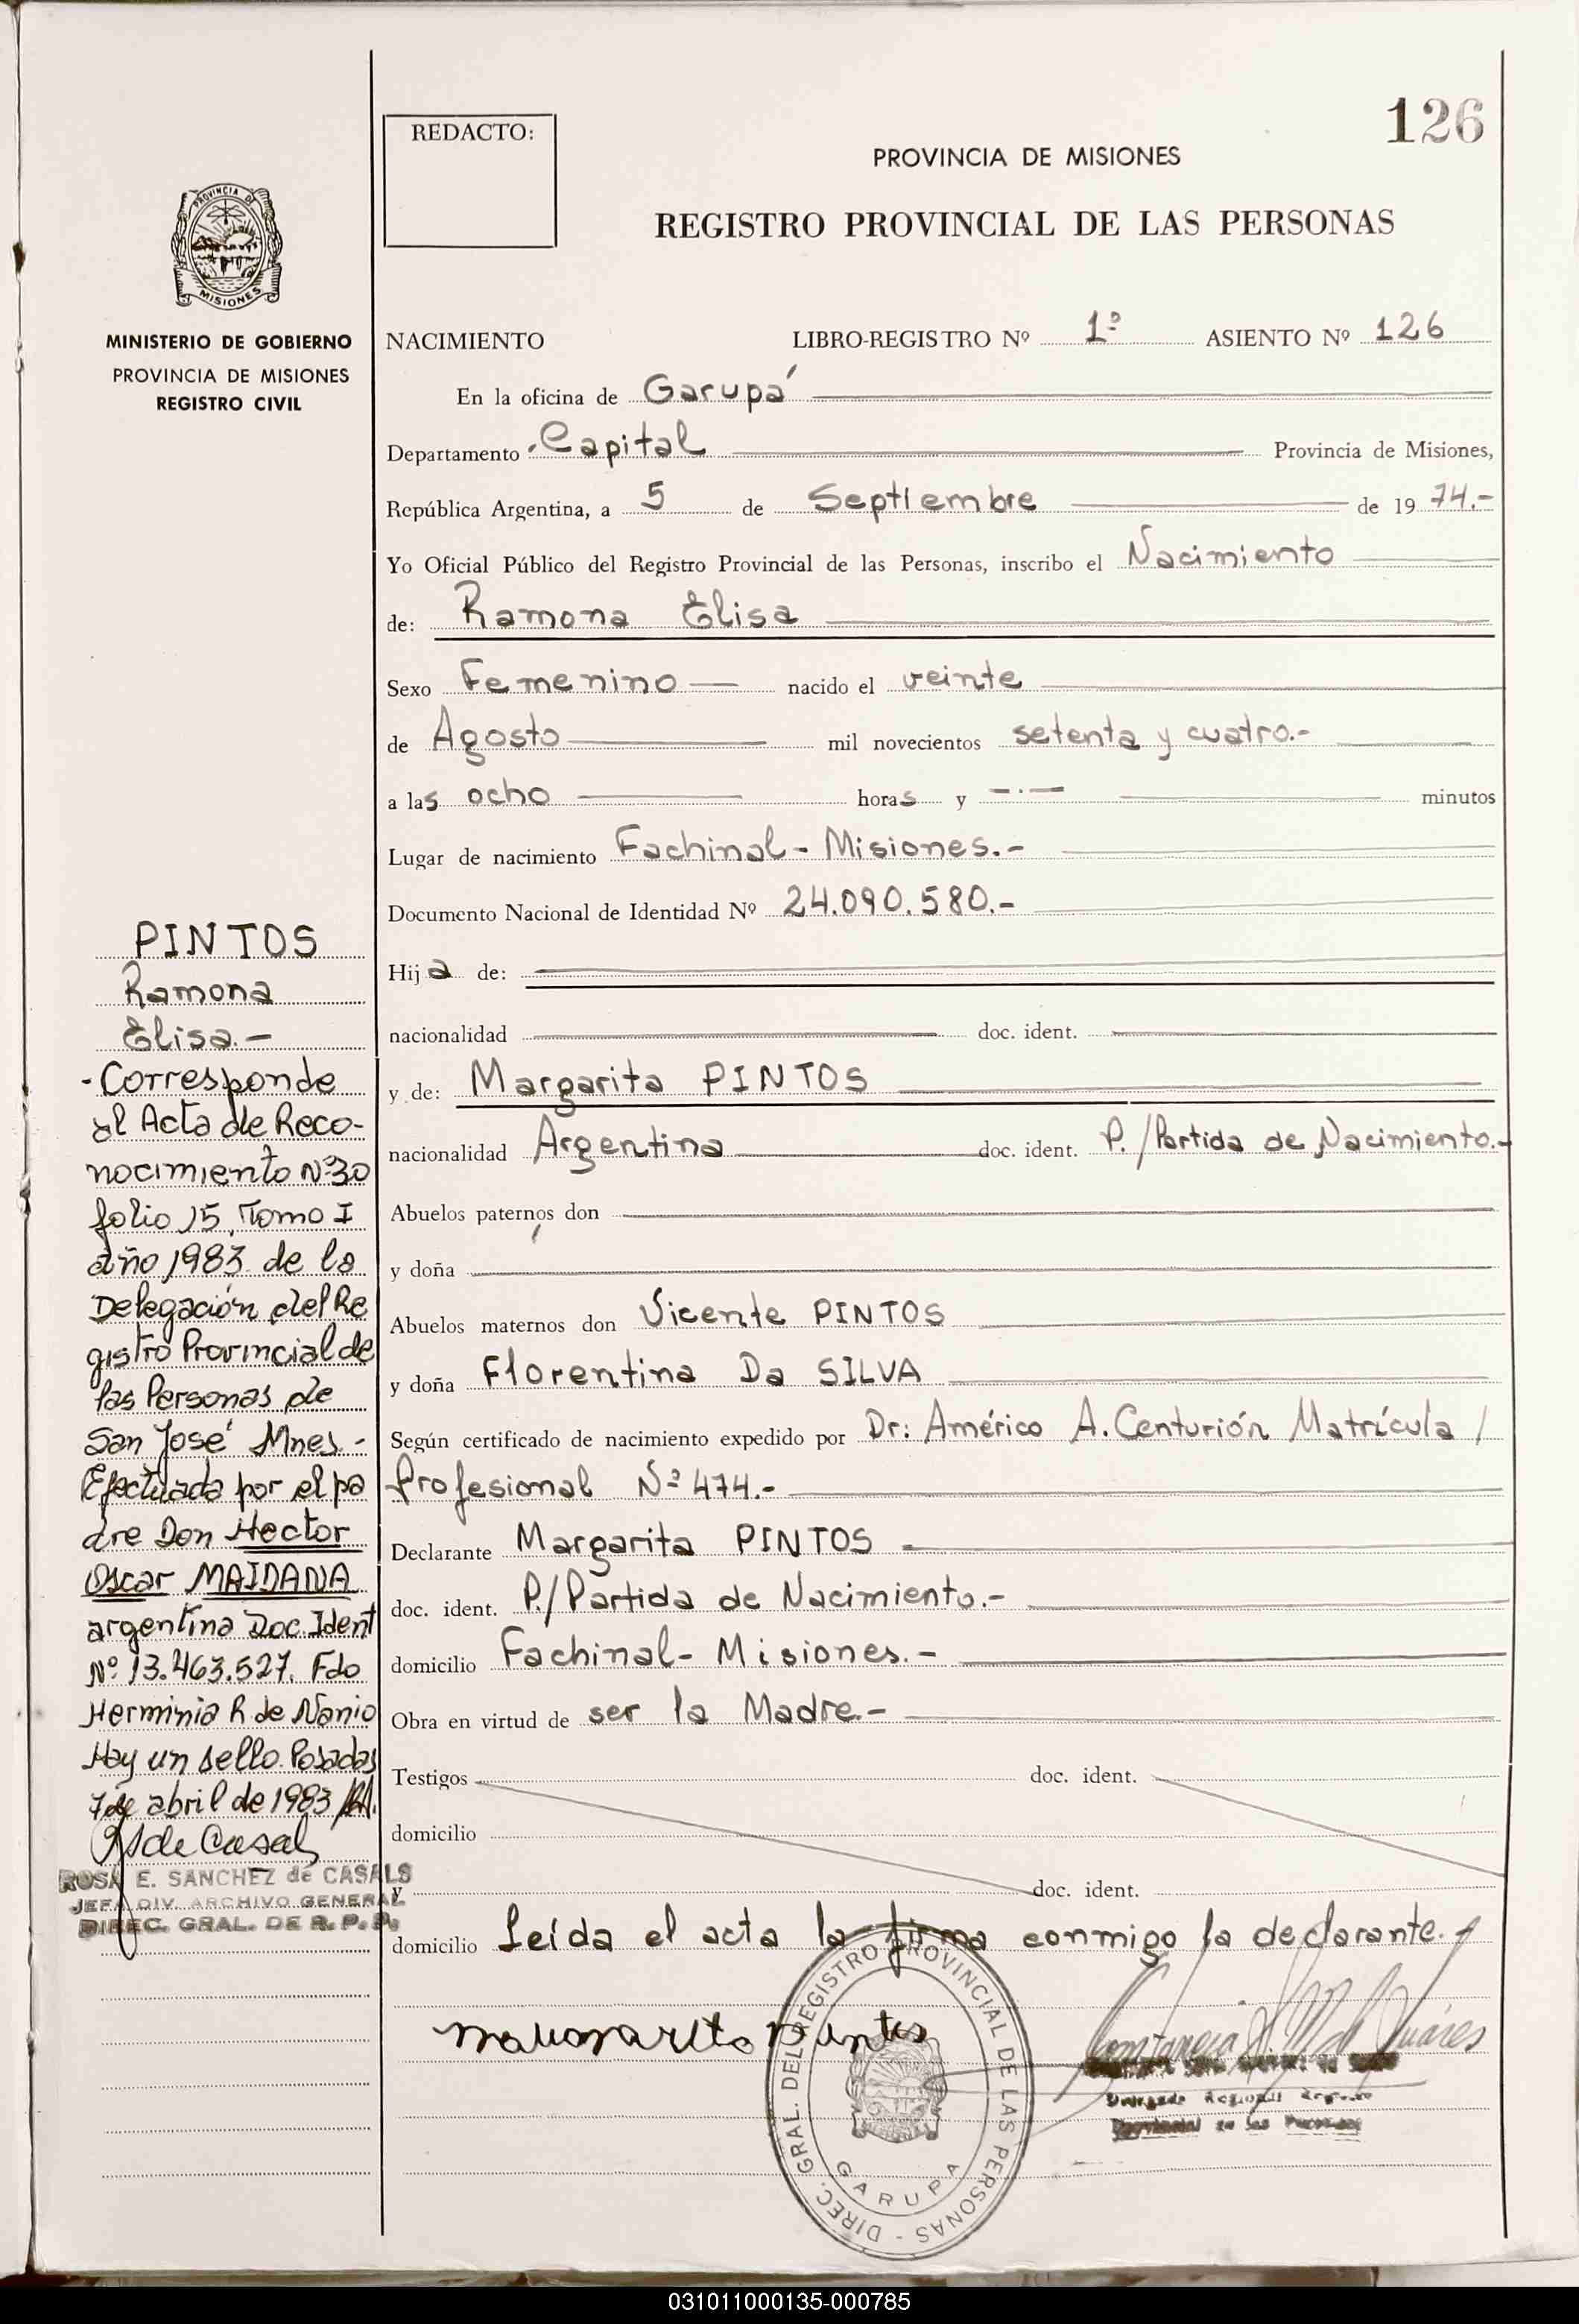 126
REDACTO:
PROVINCIA DE MISIONES
REGISTRO PROVINCIAL DE LAS PERSONAS
PROVINCIA DE
MISIONES
MINISTERIO DE GOBIERNO
PROVINCIA DE MISIONES
REGISTRO CIVIL
NACIMIENTO LIBRO-REGISTRO Nº 1º ASIENTO Nº 126
En la oficina de Garupá
Departamento Capital Provincia de Misiones,
República Argentina, a 5 de Septiembre de 1974.-
Yo Oficial Público del Registro Provincial de las Personas, inscribo el Nacimiento
de: Ramona Elisa
Sexo Femenino nacido el veinte
de Agosto mil novecientos setenta y cuatro.-
a las ocho horas y -.- minutos
Lugar de nacimiento Fachinal - Misiones.-
Documento Nacional de Identidad Nº 24.090.580.-
Hija de:
nacionalidad doc. ident.
y de: Margarita PINTOS
nacionalidad Argentina doc. ident. P./Partida de Nacimiento.-
Abuelos paternos don
y doña
Abuelos maternos don Vicente PINTOS
y doña Florentina Da SILVA
Según certificado de nacimiento expedido por Dr: Américo A. Centurión Matrícula /
Profesional Nº 474.-
Declarante Margarita PINTOS
doc. ident. P./Partida de Nacimiento.-
domicilio Fachinal - Misiones.-
Obra en virtud de ser la Madre.-
Testigos doc. ident.
domicilio
y doc. ident.
domicilio Leída el acta la firma conmigo la declarante.
PINTOS
Ramona
Elisa.-
- Corresponde
al Acta de Reco-
nocimiento Nº 30
folio 15, Tomo I
año 1983 de la
Delegación del Re
gistro Provincial de
las Personas de
San José Mnes.-
Efectuada por el pa
dre Don Hector
Oscar MAIDANA
argentina Doc. Ident
Nº 13.463.527. Fdo
Herminia R. de Nanio
Hay un sello. Posadas
7 de abril de 1983
R S de Casals
ROSA E. SANCHEZ de CASALS
JEFA DIV. ARCHIVO GENERAL
DIREC. GRAL. DE R. P. P.
Margarita Pintos
DIREC. GRAL. DEL REGISTRO PROVINCIAL DE LAS PERSONAS -
GARUPA
031011000135-000785